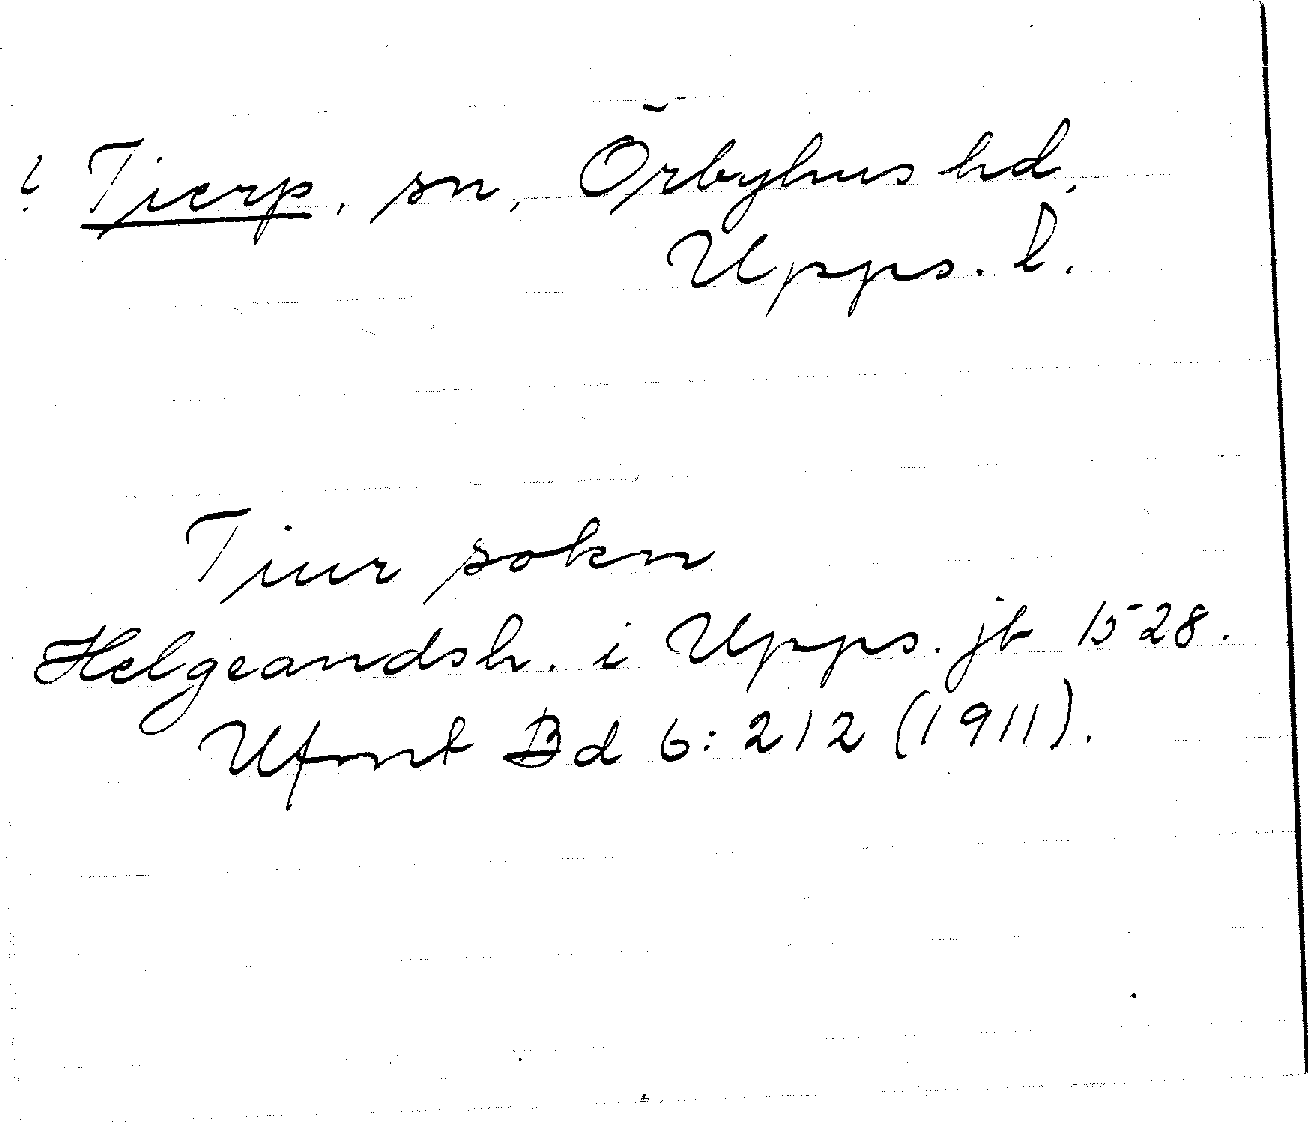 ? Tierp, sn, Örbyhus hd,
Upps. l.
Tiur sokn
Helgeandsh. i Upps. jb 1528.
Ufmt Bd 6: 212 (1911).